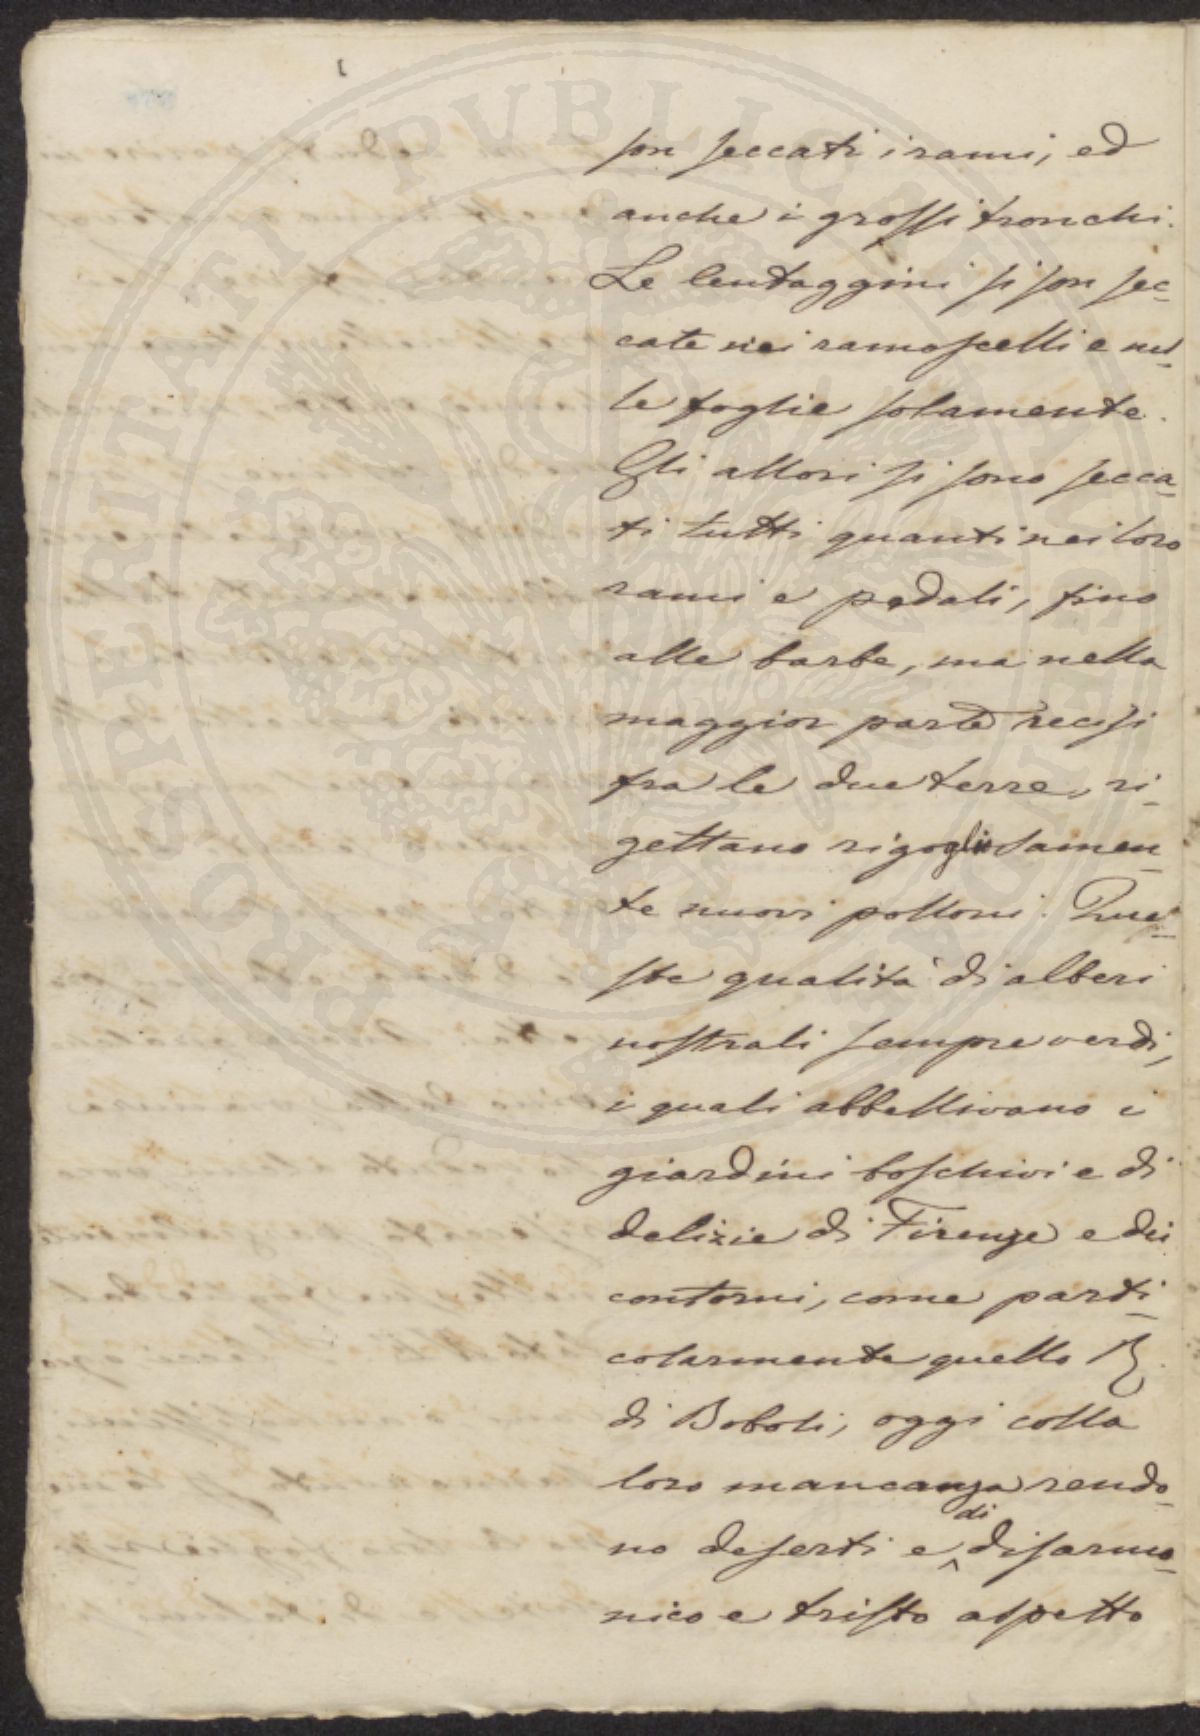 son seccati i rami, ed
anche i grossi tronchi.
Le lentaggini si son sec-
cate nei ramoscelli e nel-
le foglie solamente.
Gli allori si sono secca-
ti tutti quanti nei loro
rami e pedali, fino
alle barbe, ma nella
maggior parte recisi
fra le due terre, ri-
gettano rigogliosamen-
te nuovi polloni. Que-
ste qualità di alberi
nostrali sempre verdi,
i quali abbellivano i
giardini boschivi e di
delizie di Firenze e dei
contorni, come parti-
colarmente quello R.
di Boboli, oggi colla
loro mancanza rendo-
no deserti e di disarmo-
nico e tristo aspetto
PROSPERITATI PVBLICAE AVGENDAE